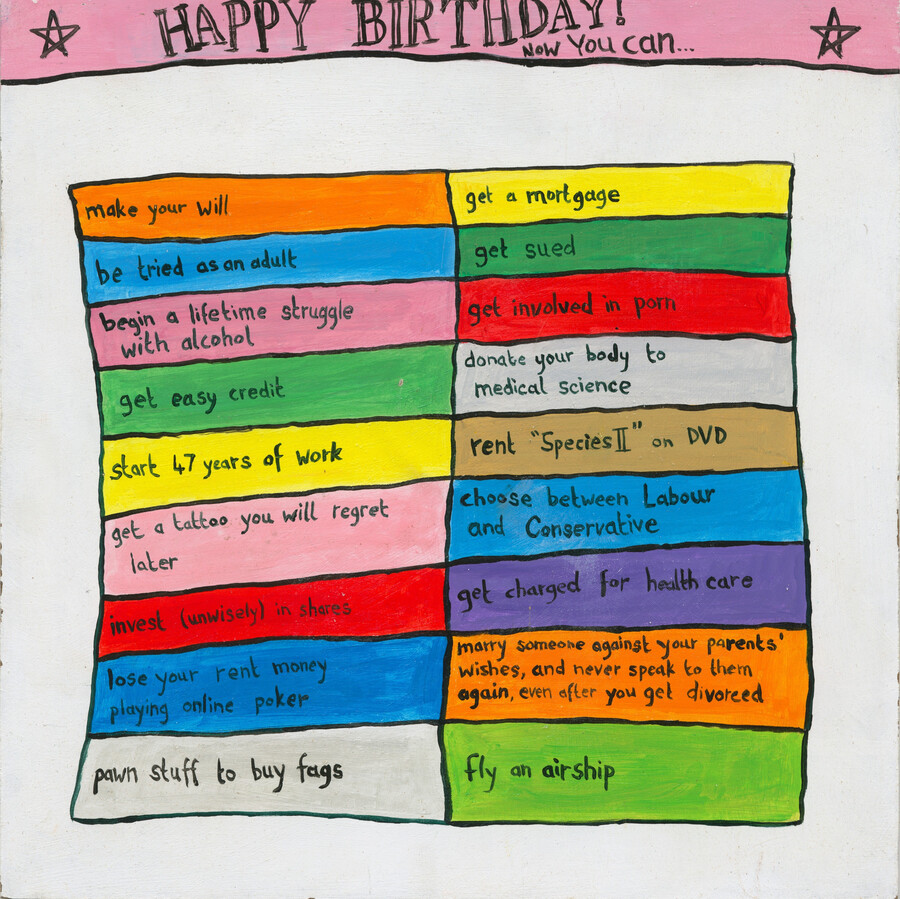 HAPPY BIRTHDAY!
NOW YOU can...
make your will
get a mortgage
be tried as an adult
get sued
begin a lifetime struggle
with alcohol
get involved in porn
get easy credit
donate your body to
medical science
start 47 years of work
rent "Species II" on DVD
get a tattoo you will regret
later
choose between Labour
and Conservative
invest (unwisely) in shares
get charged for health care
lose your rent money
playing online poker
marry someone against your parents'
wishes, and never speak to them
again, even after you get divorced
pawn stuff to buy fags
fly an airship